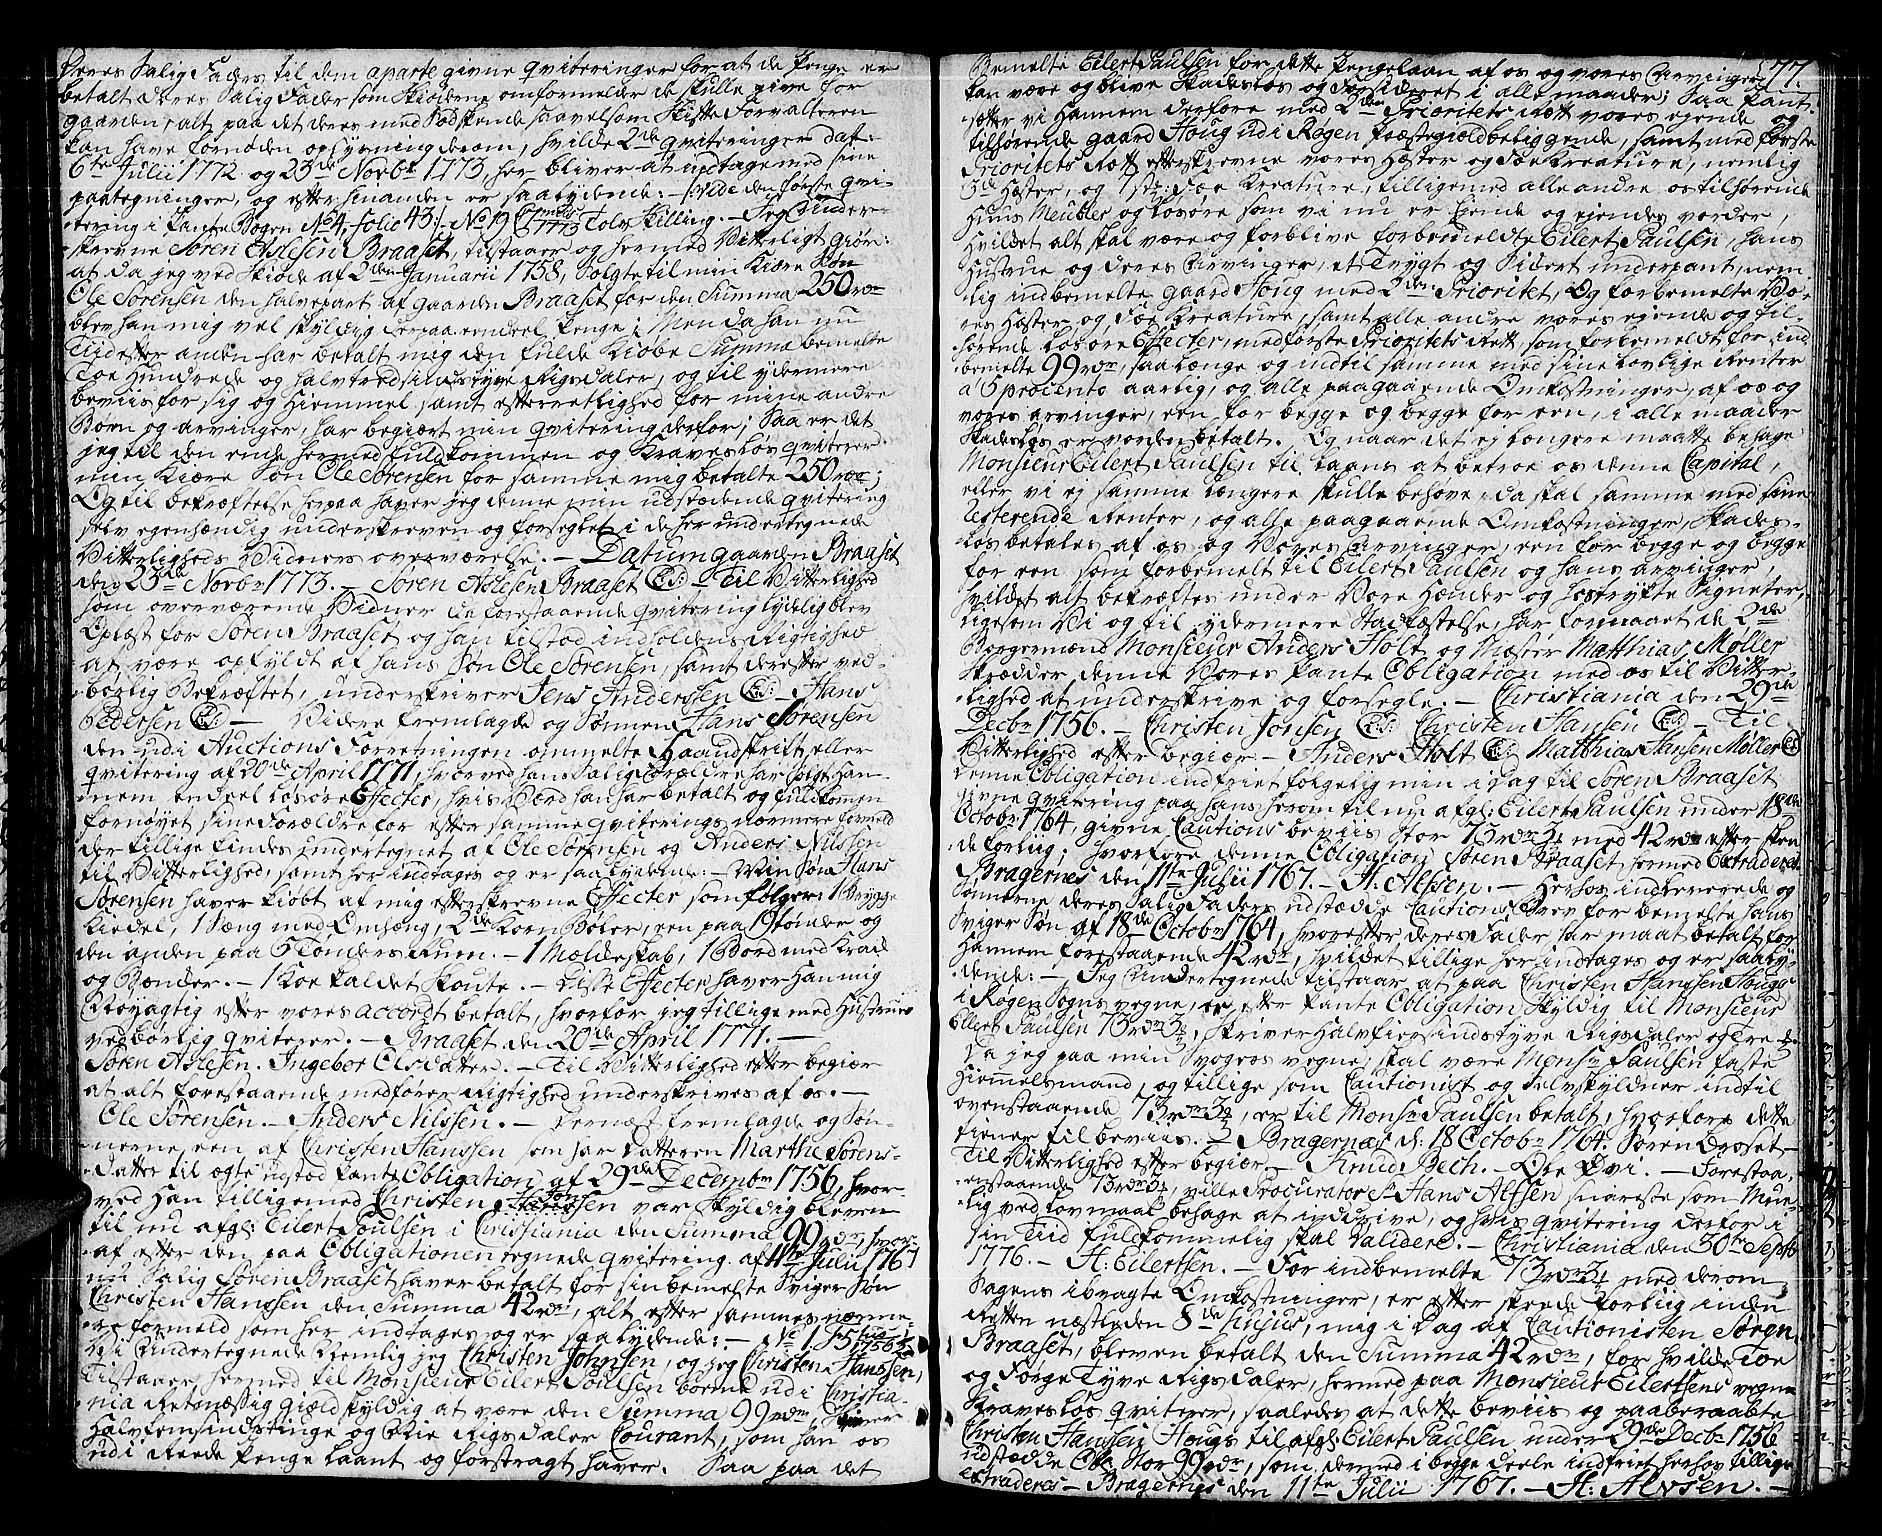 Deres Salig Fader til dem aparte givne qviteringer for at de Penge er
betalt deres Salig Fader som Skiøderne omformelder de skulle give for
gaarden, alt paa det deres med Sødskende saavelsom Skifte Forvalteren
kan have fornøden oplysning derom, hvilke 2de qviteringer dat:
6te Julii 1772 og 23de Novbr 1773, her bliver at indtage med sine
paategninger, og efter hinanden er saalydende: - hvilde den første qvi-
tering i Pante Bogen No 4, folio 43: - No 19 1773 Tolv Skilling. - Jeg Under-
skrevne Søren Aslesen Braaset, tilstaaer og hermed Vitterligt giør:
at da jeg ved Skiøde af 2den Januarii 1758, Solgte til min Kiære Søn
Ole Sørensen den halvepart af gaarden Braaset for den Summa 250 rdr
blev han mig vel skyldig derpaa eendeel Penge; Men da han nu
Tiid efter anden har betalt mig den fulde Kiøbe Summa bemelte
Toe Hundrede og halvtredsindstyve Rigsdaler, og til ydermere
beviis for sig og Hiemmel samt efterretlighed for mine andre
Børn og arvinger, har begiært min qvitering derfor; Saa er det
jeg til den ende hermed fuldkommen og Kravesløs qviterer
min Kiære Søn Ole Sørensen for samme mig betalte 250 rdr;
Og til bekræftelse herpaa haver jeg denne min udstædende qvitering
selv egenhændig underskreven og forseglet i de her undertegnede
Vitterligheds Vidners overværelse. - Datum gaarden Braaset
den 23de Novbr 1773. - Søren Aslesen Braaset (L.S.) - Til Vitterlighed
som overværende Vidner da forestaaende qvitering lydelig blev
Oplæst for Søren Braaset og han tilstod indholdens Rigtighed
at være opfyldt af hans Søn Ole Sørensen, samt derefter ved-
børlig Bekræftet, underskriver Jens Anderssen (L.S.) - Hans
Pedersen (L.S.) - Videre fremlagde og Sønnen Hans Sørensen
den udi Auctions Forretningen ommelte Haandskrift eller
qvitering af 20de April 1771, hvorved hans Salig Forældre har solgt Han-
nem endeel Løsøre Effecter, hvis Værd han har betalt og fuldkomen
fornøyet sine Forældre for efter samme qviterings nærmere formeld
der tillige findes undertegnet af Ole Sørensen og Anders Nilssen
til Vitterlighed, samt her indtages og er saalydende: - Min Søn Hans
Sørensen haver kiøbt af mig efterskrevne Effecter som følger: 1 Brygge
Kiedel, 1 Sæng med Omhæng, 2de Korn Bøler, een paa 19 tønder og
den anden paa 5 Tønders Rum. - 1 Mældeskab, 1 Bord med Krad
og Bænder. - 1 Koe kaldet Skoute. - Disse Effecter haver Han mig
Nøyagtig efter vores accordt betalt, hvorfor jeg tillige med Hustrue
vedbørlig qviterer. - Braaset den 20de April 1771. -
Søren Aslesen. Ingebor Olsdatter. - Til Vitterlighed efter begiær
at alt forestaaende medfører Rigtighed underskrives af os. -
Ole Sørensen. - Anders Nilssen. - Dernæst fremlagde og Søn-
nerne, een af Christen Hanssen som har Datteren Marthe Sørens-
Datter til ægte udstæd Pante Obligation af 29de Decembr 1756, hvor-
ved Han tilligemed Christen Jonssen var skyldig bleven
til nu afgl: Eilert Poulsen i Christiania den Summa 99 rdr, hvor-
af efter den paa Obligationen tegnede qvitering af 11te Julii 1767
nu Salig Søren Braaset haver betalt for sin bemelte Sviger Søn
Christen Hanssen den Summa 42 rdr, alt efter sammes nærme-
re formeld som her indtages og er saalydende: - No 1, 1756
Vi Undertegnede Nemlig jeg Christen Johnsen, og jeg Christen Hanssen,
Tilstaaer hermed til Monsieur Eilert Poulsen boende udi Christia-
nia Retsmæssig giæld skyldig at være den Summa 99 rdr, skriver
Halvfemsindstinge og Nie Rigsdaler Courant, som han os
udi Reede Penge laant og forstragt haver. Saa paa det
77.
Bemelte Eilert Paulsen for dette Pengelaan af os og vores Arvinger
kan være og blive Skadesløs og forsideret i alle maader; Saa pant-
sætter vi Hannem derfore med 2den Prioritets Rætt vores ejende og
tilhørende gaard Houg udi Rogen Præstegiæld beliggende, samt med første
Prioritets Rætt efterskrevne vores Hæster og Fæe Kreature, nemlig
Hæster, og 1 st: Fæe Kreature, tilligemed alle andre os tilhørende
Huus Meubler og Løsøre som vi nu er Ejende og ejendes vorder,
Hvildet alt skal være og forblive forbemeldte Eilert Paulsen, hans
Hustrue og deres Arvinger, et Trygt og Sikert underpant, nem-
lig indbemelte gaard Houg med 2den Prioritet, Og forbemelte Vo-
res Hæster og Fæe Kreature, samt alle andre vores ejende og til-
hørende Løsøre Effecter, med første Prioritets Rett, som forbemeldt for ind-
bemelte 99 rdr, saa længe og indtil samme med sine lovlige Renter
a' 5 procento aarlig, og alle paagaaende Omkostninger, af os og
vores arvinger, een for begge og begge for een, i alle maader
Skadesløs er vorden betalt. Og naar det ej længere maatte behage
Monsieur Eilert Paulsen til Laans at betroe os denne Capital,
eller vi ej samme længere skulle behøve, da skal samme med sine
resterende Renter, og alle paagaaende Omkostninger, Skades-
løs betales af os og Vores arvinger, een for begge og begge
for een som forermelt til Eilert Paulsen og hans arvinger,
hvildet alt bekræftes under Vore Hænder og hostrykte Signeter,
ligesom Vi og til ydermere Stadfæstelse, har formaaet de 2de
Borgermænd Monsieur Anders Holt og Mæster Matthias Møller
Skrædder, denne Vores Pante Obligation med os til Vitter-
lighed at underskrive og forsegle. - Christiania den 29de
Decbr 1756. - Christen Jonsen (L.S.) Christen Hansen (L.S.) - Til
Vitterlighed efter begiær. - Anders Holt (L.S.) Matthias Hansen Møller (L.S.)
Denne Obligation indfriet følgelig min i Dag til Søren Braaset
givne qvitering paa hans herom til nu afgl: Eilert Paulsen under 18de
Octobr 1764, givne Cautions beviis stor 73 rdr 3 ½ med 42 rdr efter skeen-
de forliig; hvorfore denne Obligation Søren Braaset hermed Extraderes.
Bragernes den 11te Julii 1767. - H. Alfsen. - Herhos indleverede og
Sønnerne deres Salig Faders udstædde Cautions Brev for bemelte hans
Sviger Søn af 18de Octobr 1764, hvorefter deres Fader har maat betalt for
Hannem forestaaende 42 rdr, hvildet tillige her indtages og er saaly-
dende: - Jeg Undertegnede tilstaar at paa Christen Hanssen Hougs
i Rogen Sogns vegne, er efter Pante Obligation, skyldig til Monsieur
Eilert Paulsen 73 rdr 3 ½, skriver Halvfierdsindstyve Rigsdaler og Tre ½.
Da jeg paa min Svogers vegne, skal være Monsr Paulsen faste
Hiemmelsmand, og tillige som Cautionist og Selvskyldner indtil
ovenstaaende 73 rdr 3 ½, er til Monsr Paulsen betalt, hvorfore dette
tiener til beviis. Bragernæs d: 18 Octobr 1764. Søren Broset -
Til Vitterlighed efter begiær - Knud Bech. - Ole Evi. - Forestaa-
enstaaende 73 rdr 3 ½, ville Procurator Sr Hans Alfsen snareste som Mue-
lig ved Lovmaal behage at inddrive, og hvis qvitering derfor i
sin Tiid fuldkommelig skal Validere. - Christiania den 30te Septb
1776. - H. Eilertsen. - For indbemelte 73 rdr 3 ½ med derom
Sagens ibragte Omkostninger, er efter skeede Forliig inden
Retten næstleden 8de hujus, mig i Dag af Cautionisten Søren
Braaset, bleven betalt den Summa 42 rdr, for hvilke Toe
og Førge Tyve Rigsdaler, hermed paa Monsieur Eilertsens vegne
Kravesløs qviterer, saaledes at dette beviis og paaberaabte
Christen Hanssen Hougs til afgl: Eilert Paulsen under 29de Decbr 1756
udstædde Obl. Stor 99 rdr, som dermed i begge deele indfriet herhos tillige
extraderes - Bragernes den 11te Julii 1767. - H: Alvsen. -